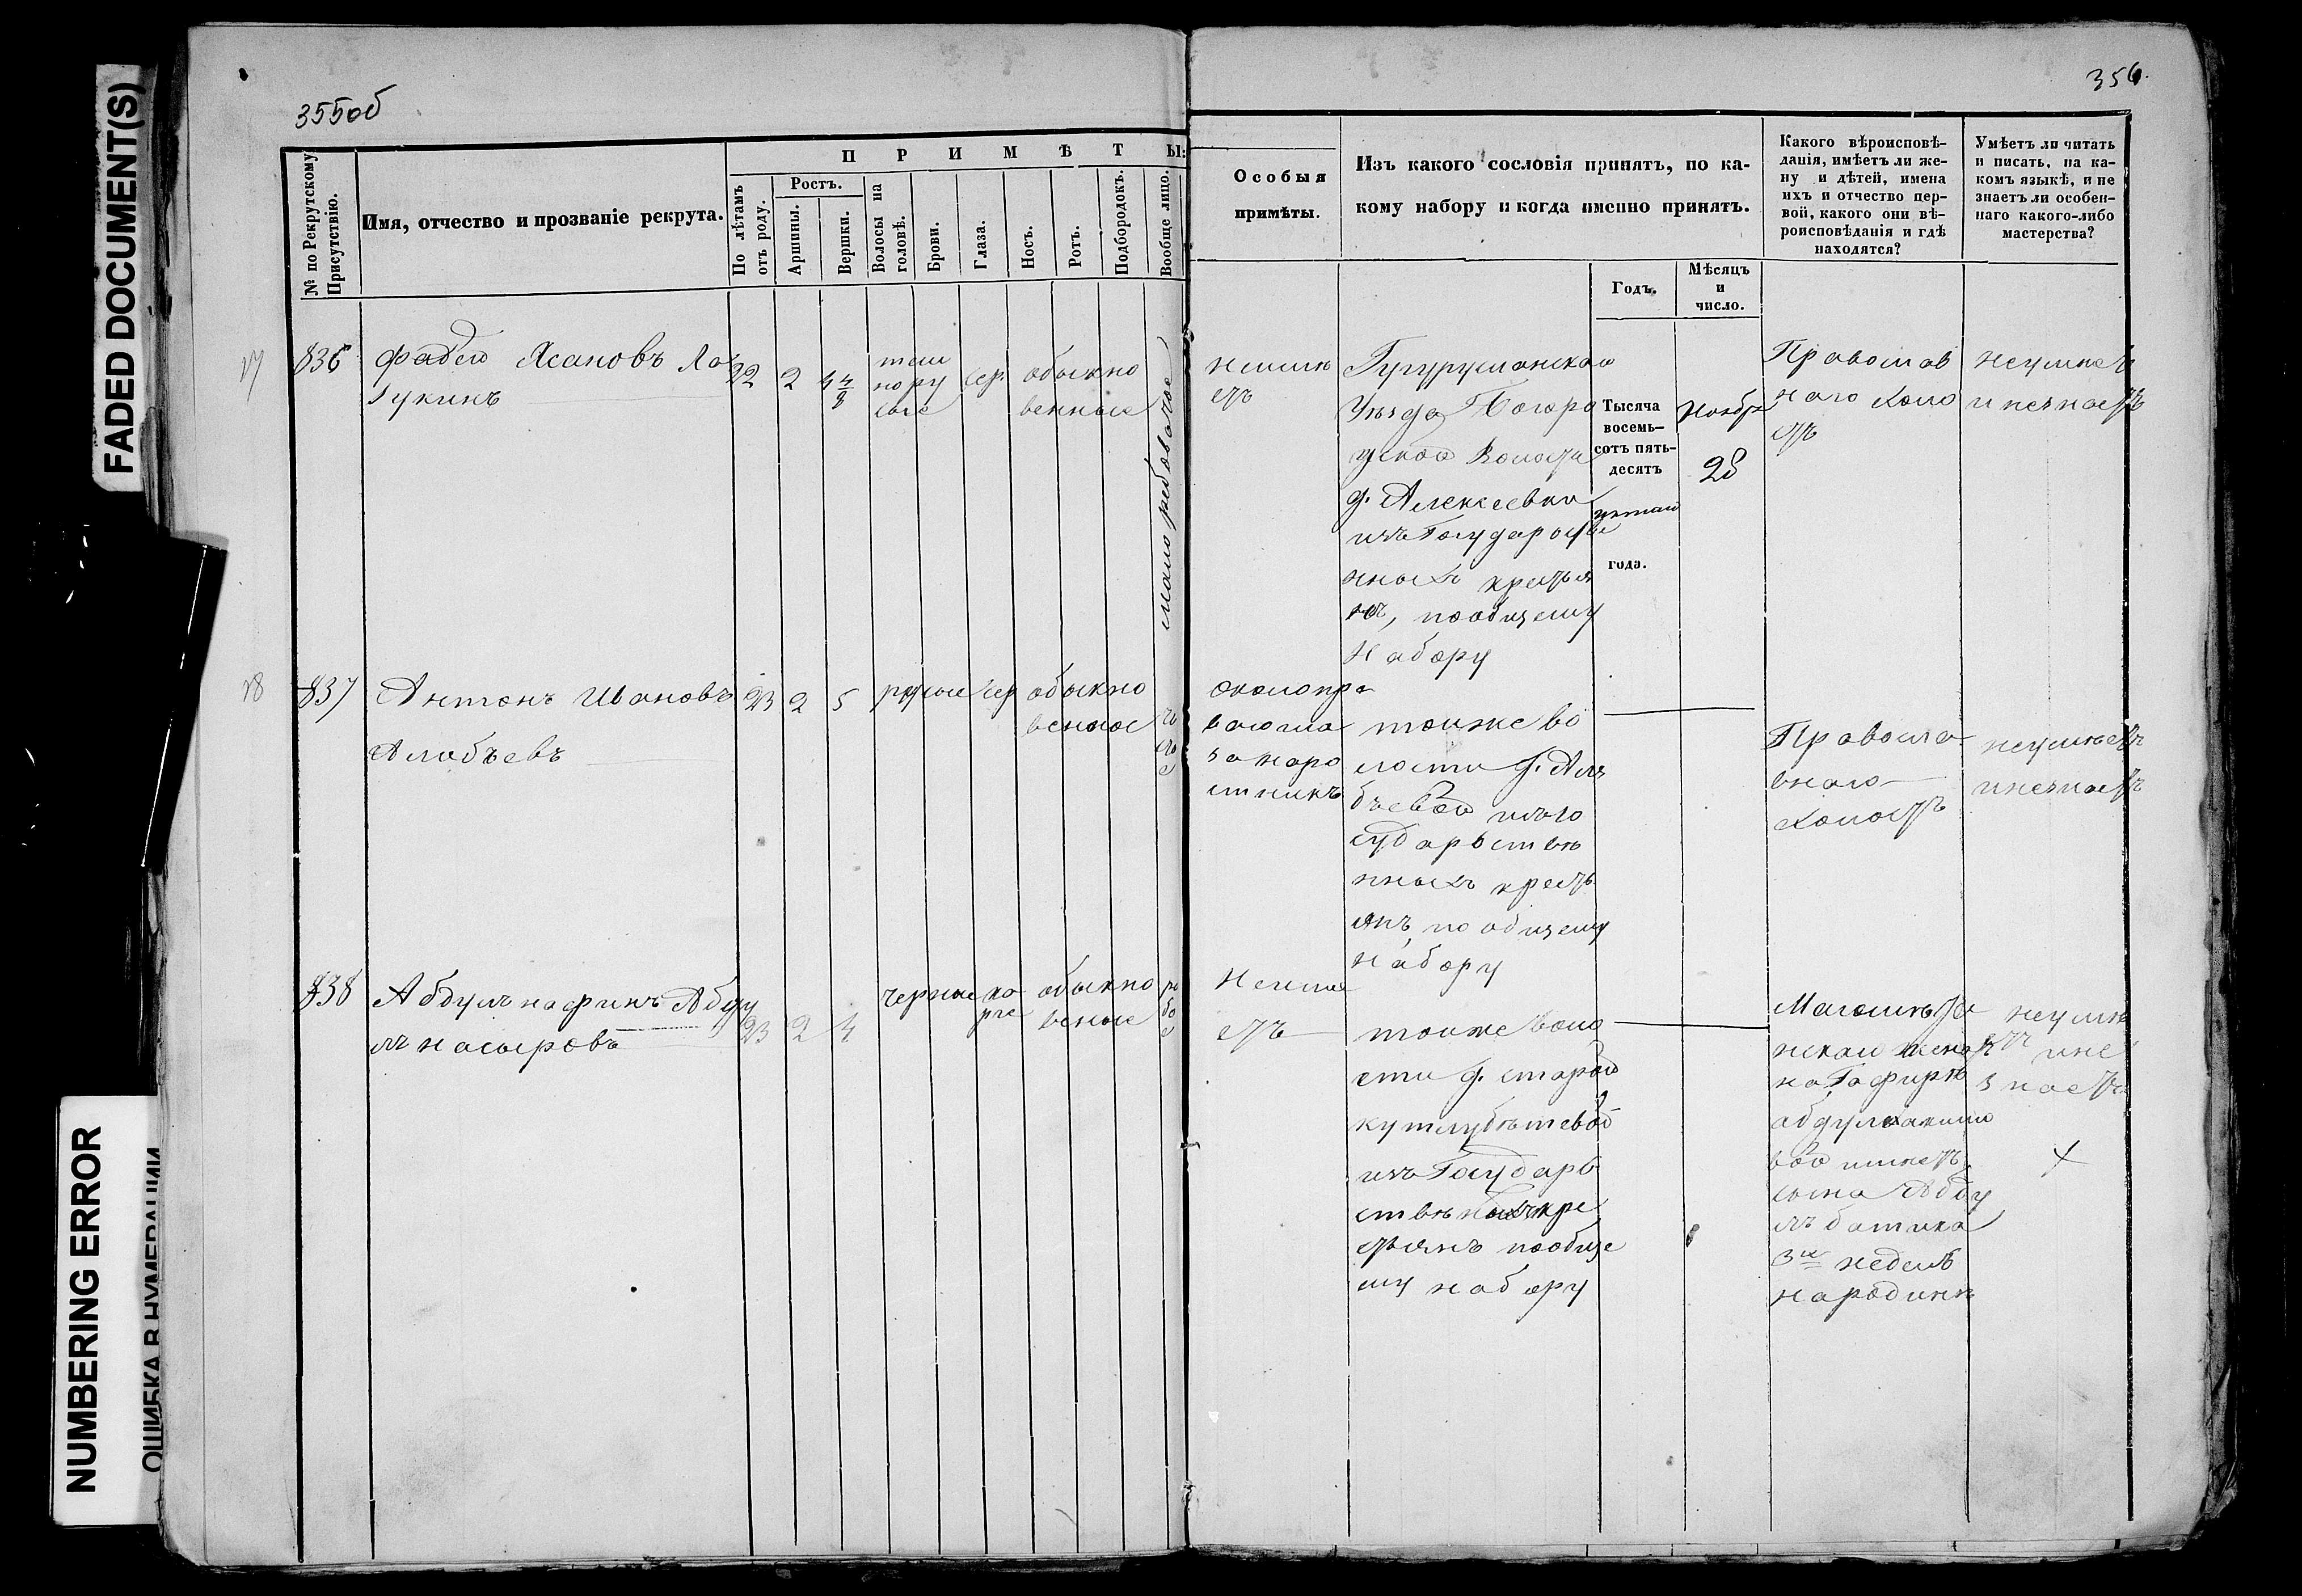 355об
356.
FADED DOCUMENT(S)
NUMBERING ERROR
ОШИБКА В НУМЕРАЦИИ
№ по Рекрутскому Присутствію.
Имя, отчество и прозваніе рекрута.
ПРИМѢТЫ:
По лѣтамъ отъ роду.
Ростъ.
Аршины.
Вершки.
Волосы на головѣ.
Брови.
Глаза.
Носъ.
Ротъ.
Подбородокъ.
Вообще лицо.
Особыя
примѣты.
Изъ какого сословія принятъ, по ка-
кому набору и когда именно принятъ.
Годъ.
Мѣсяцъ
и
число.
Какого вѣроисповѣ-
данія, имѣетъ ли же-
ну и дѣтей, имена
ихъ и отчество пер-
вой, какого они вѣ-
роисповѣданія и гдѣ
находятся?
Умѣетъ ли читать
и писать, на ка-
комъ языкѣ, и не
знаетъ ли особен-
наго какого-либо
мастерства?
17
836
Фадей
22
2
4 4/8
темно русые
сер.
обыкно
венные
мало рябоватое
неимѣ
етъ
Бугурусланскаго
Уѣзда
Волости
д. Алексеевки
изъ Государстве
нныхъ крестья
нъ, пообщему
Набору
Тысяча
восемь-
сотъ пять-
десятъ
пятаго
года.
Ноября
28
Православ
наго холо
стъ
неумеетъ
и незнаетъ
18
837
Антонъ Ивановъ
Алябьевъ
23
2
5
русые
сер
обыкно
венные
чи
сто
е
около пра
ваго гла
за наро
стникъ
тойже во
лости д. Аля
бьевой изъ го
сударьстве
нныхъ кресть
янъ, по общему
набору
Правосла
внаго
холостъ
неумѣетъ
и незнаетъ
838
Абдулънафикъ Абду
лънасыровъ
23
2
4
черные
ка
рие
обыкно
венные
ря
бо
е
Неиме
етъ
тойже воло
сти д. старой
кутлубътевой
изъ Государь
ственныхъ кре
стьянъ пообще
му набору
Магометан
искаго жена
на Гафиря
абдулхакимо
вой имеетъ
сына Абду
лъбатика
3хъ недель
народинѣ
неумѣ
етъ и не
знаетъ